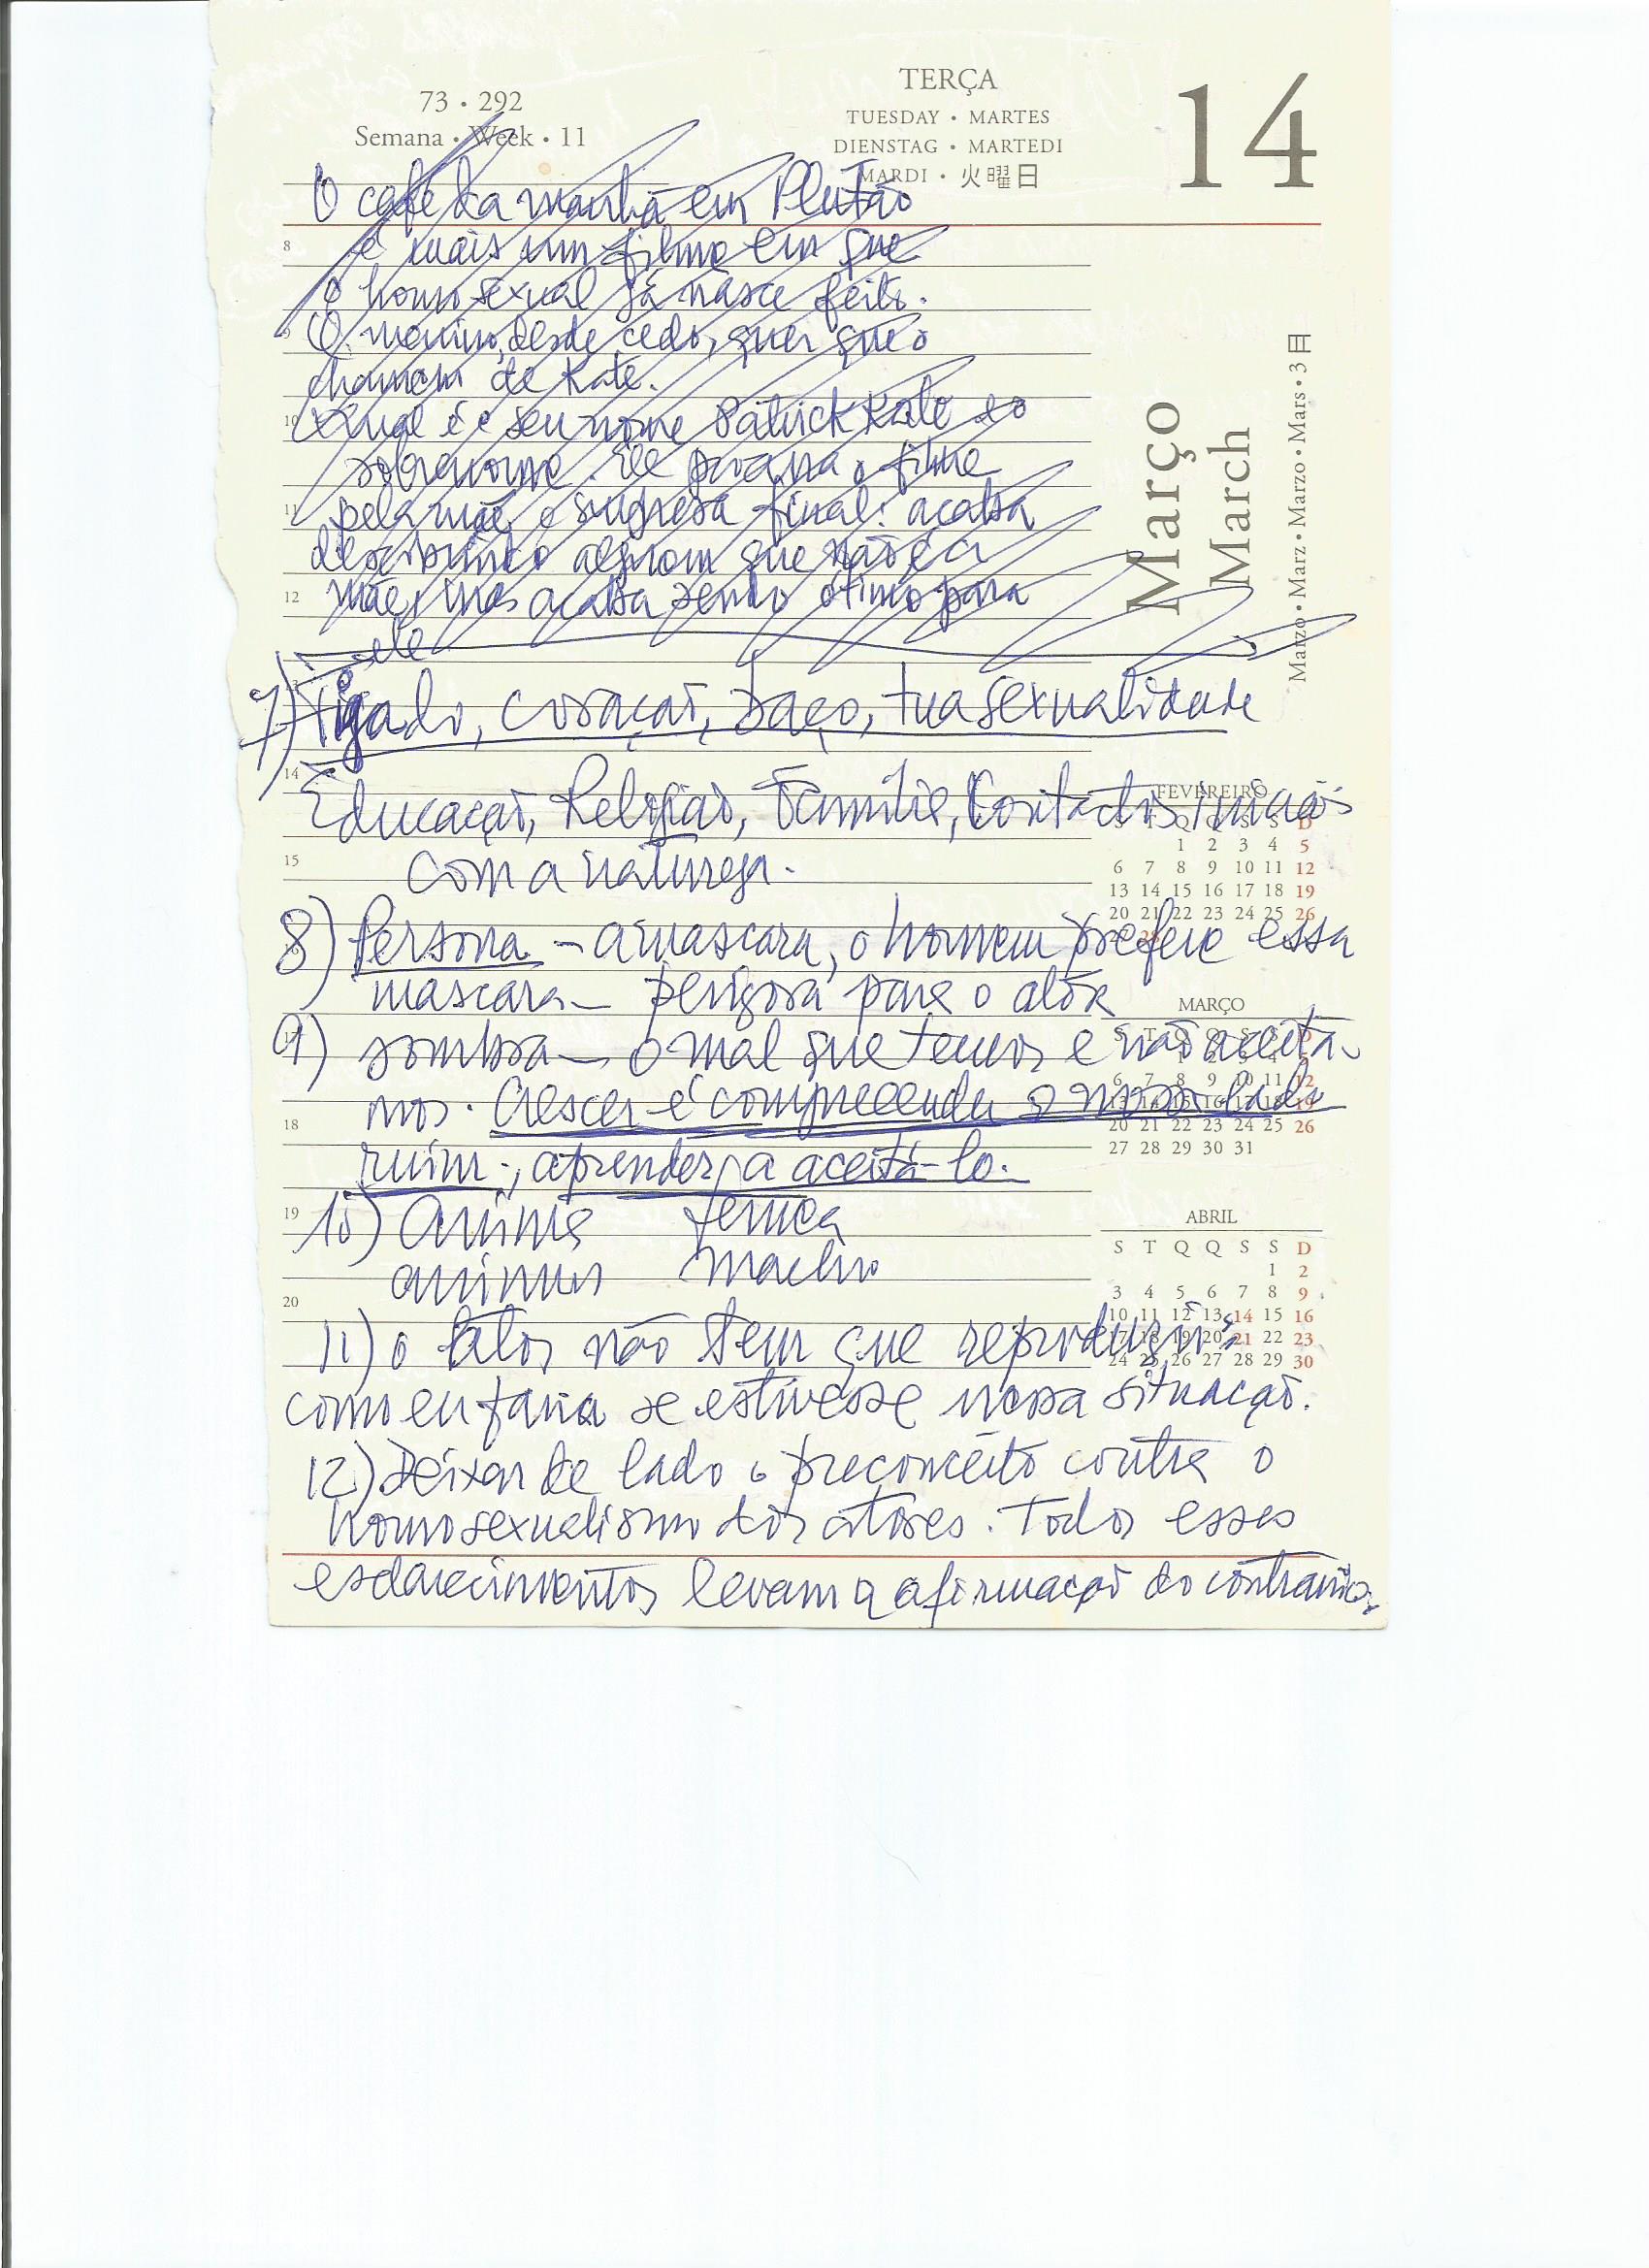 73 • 292
Semana • Week • 11
TERÇA
TUESDAY • MARTES
DIENSTAG • MARTEDI
MARDI • 火曜日
14
Março
March
Marzo • Marz • Marzo • Mars • 3日
O café da manhã em Plutão
8
é mais um filme em que
o homosexual já nasce feito.
9
O menino, desde cedo, quer que o
chamem de Kate.
10
qual é o seu nome Patrick Kate é o
sobrenome. Ele passa o filme
11
pela mãe, e surpresa final: acaba
descobrindo alguem que não é a
12
mãe, mas acaba sendo ótimo para
ele
13
7) Fígado, coração, baço, tua sexualidade
14
Educação, Religião, Família, Contactos
15
com a natureza.
8) Persona – a mascara, o homem prefere essa
mascara – perigosa para o ator
17
9) sombra – o mal que temos e não aceita-
mos. Crescer é compreender o nosso lado
18
ruim; aprender a aceitá-lo.
19
10) anima femea
animus macho
20
11) o ator não tem que reproduzir:
como eu faria se estivesse nessa situação.
12) Deixar de lado o preconceito contra o
homosexualismo dos atores. Todos esses
esclarecimentos levam a afirmação do contrario.
FEVEREIRO
S T Q Q S S D
1 2 3 4 5
6 7 8 9 10 11 12
13 14 15 16 17 18 19
20 21 22 23 24 25 26
28
MARÇO
S T Q Q S S D
1 2 3 4 5
6 7 8 9 10 11 12
13 14 15 16 17 18 19
20 21 22 23 24 25 26
27 28 29 30 31
ABRIL
S T Q Q S S D
1 2
3 4 5 6 7 8 9
10 11 12 13 14 15 16
17 18 19 20 21 22 23
24 25 26 27 28 29 30